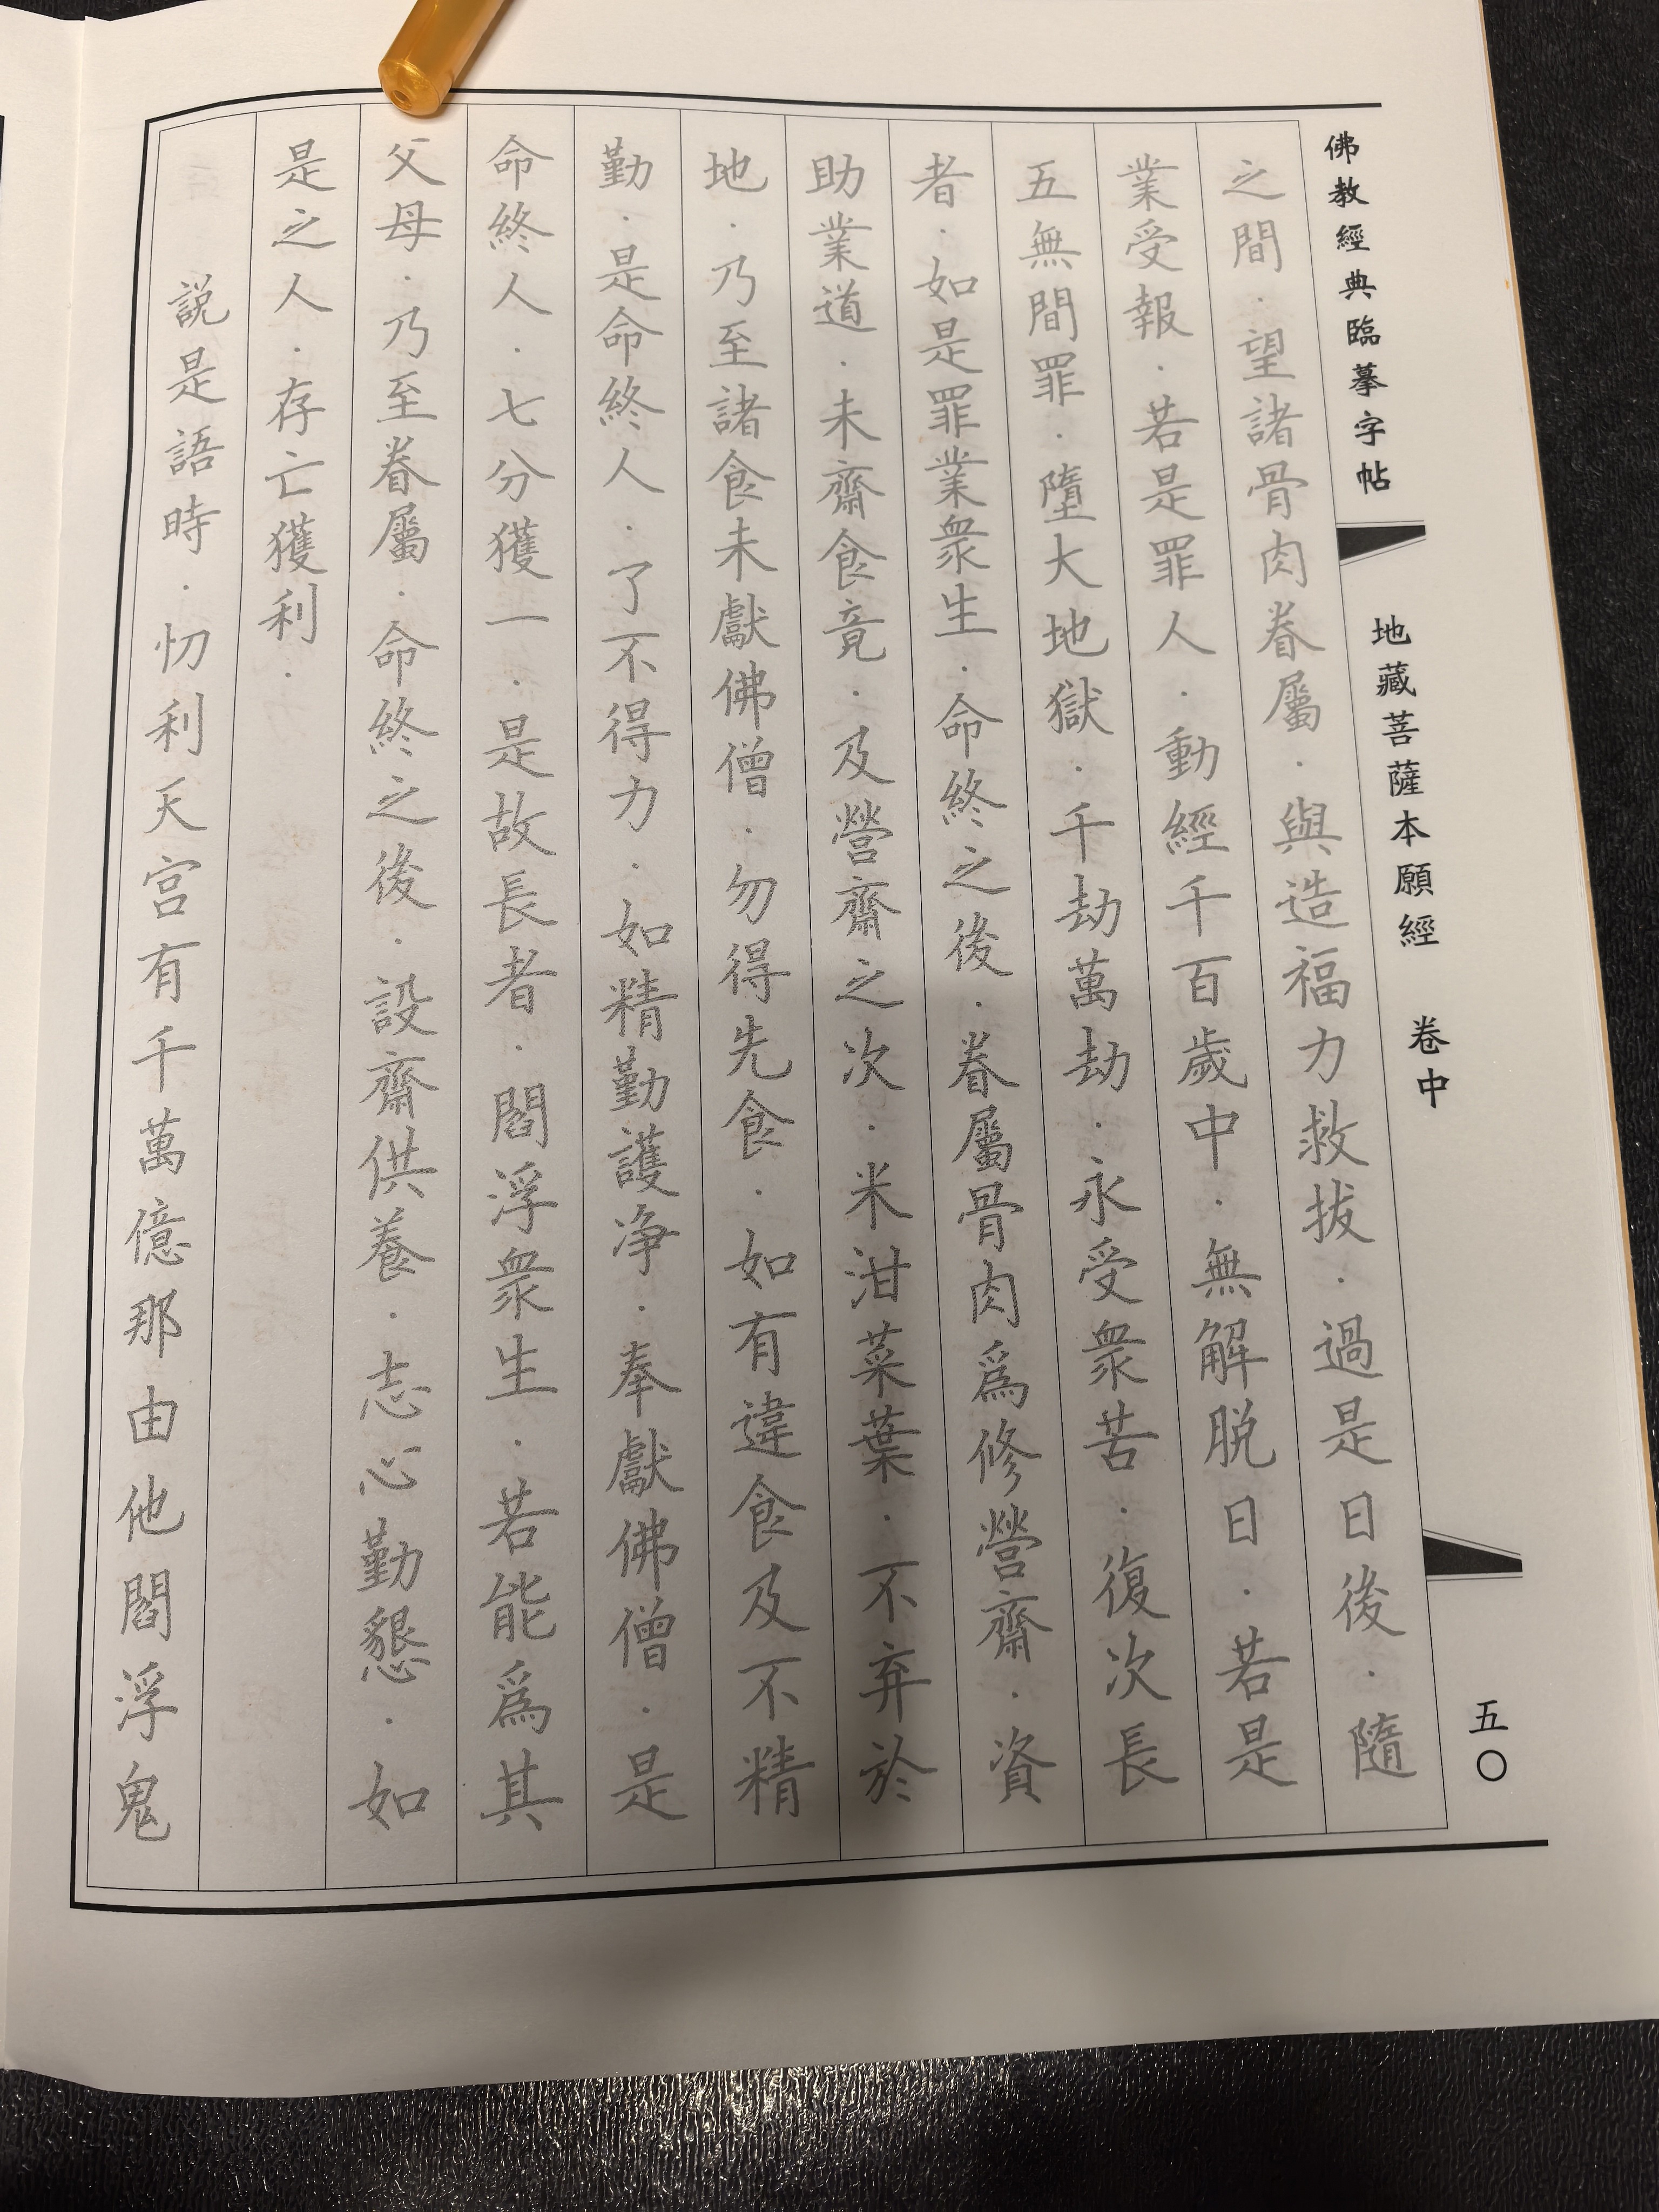 佛教經典臨摹字帖
地藏菩薩本願經 卷中
五〇
之間．望諸骨肉眷屬．與造福力救拔．過是日後．隨
業受報．若是罪人．動經千百歲中．無解脫日．若是
五無間罪．墮大地獄．千劫萬劫．永受眾苦．復次長
者．如是罪業眾生．命終之後．眷屬骨肉爲修營齋．資
助業道．未齋食竟．及營齋之次．米泔菜葉．不弃於
地．乃至諸食未獻佛僧．勿得先食．如有違食及不精
勤．是命終人．了不得力．如精勤護净．奉獻佛僧．是
命終人．七分獲一．是故長者．閻浮眾生．若能爲其
父母．乃至眷屬．命終之後．設齋供養．志心勤懇．如
是之人．存亡獲利．
說是語時．忉利天宮有千萬億那由他閻浮鬼